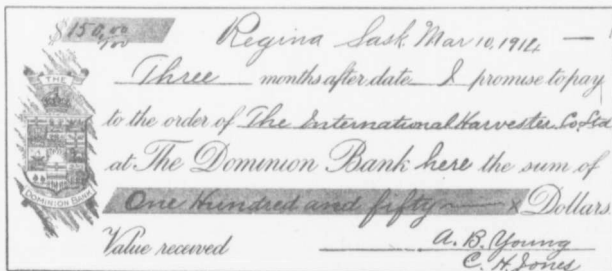 $150.00/100 Regina Sask. Mar 10, 1914 —
Three months after date I promise to pay
to the order of The International Harvester Co. Ltd
at The Dominion Bank here the sum of
One Hundred and fifty — x Dollars
Value received A. B. Young
C. H. Jones
THE
DOMINION BANK